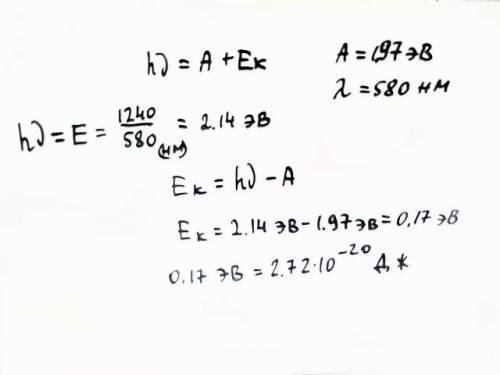 hν = A + Eк
A = 1,97 эВ
λ = 580 нм
hν = E = 1240/580(нм) = 2.14 эВ
Eк = hν - A
Eк = 2.14 эВ - 1.97 эВ = 0,17 эВ
0.17 эВ = 2.72·10⁻²⁰ Дж